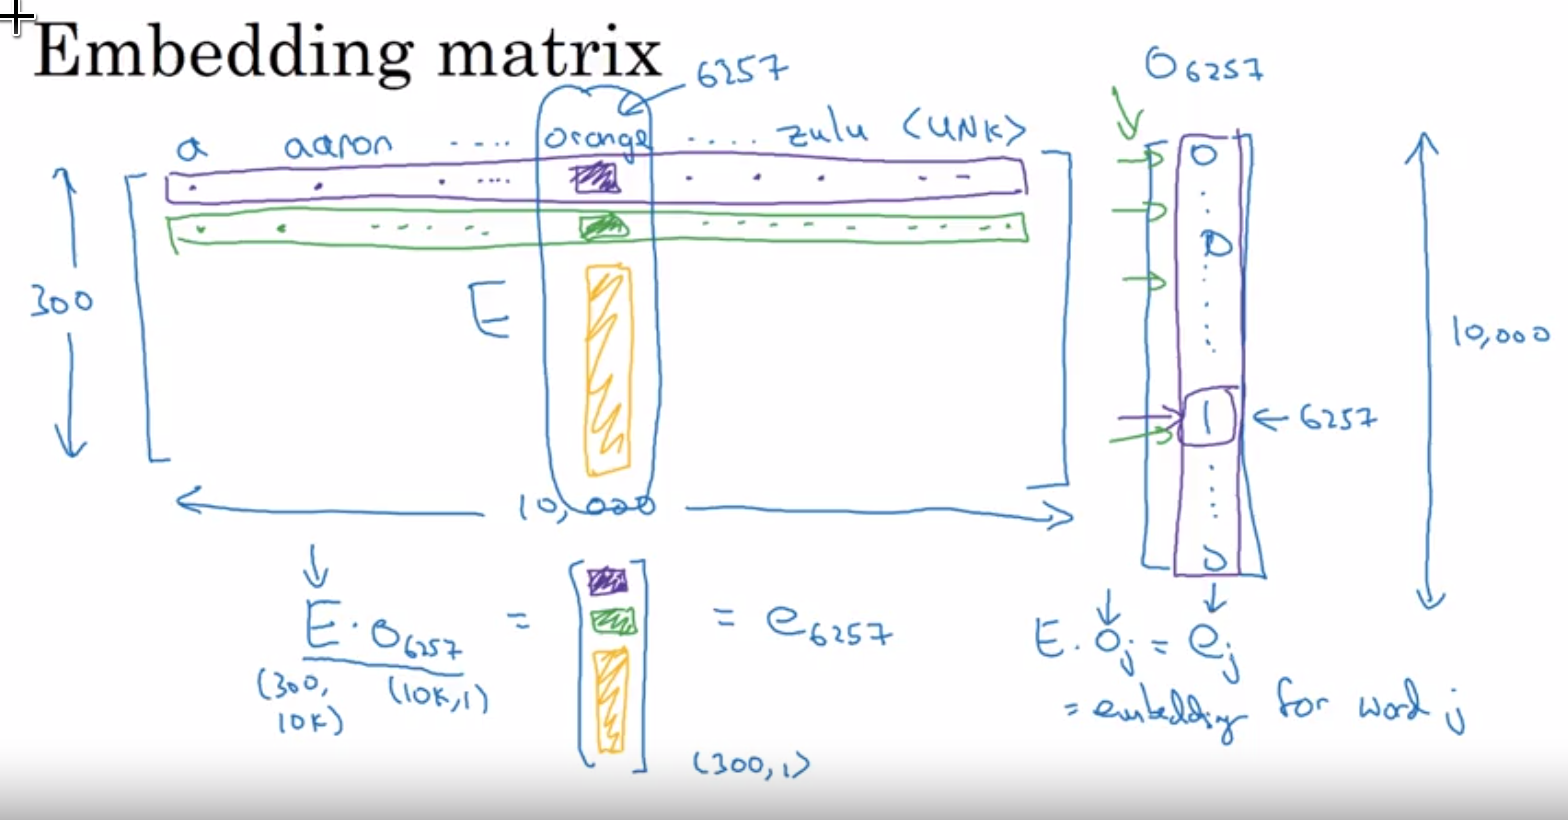 Embedding matrix
6257
O6257
a aaron .... orange .... zulu <UNK>
300
E
10,000
0
0
1 ← 6257
0
10,000
E · O6257 = = e6257
(300, 10K) (10K,1)
(300,1)
E. Oj = ej
= embedding for word j